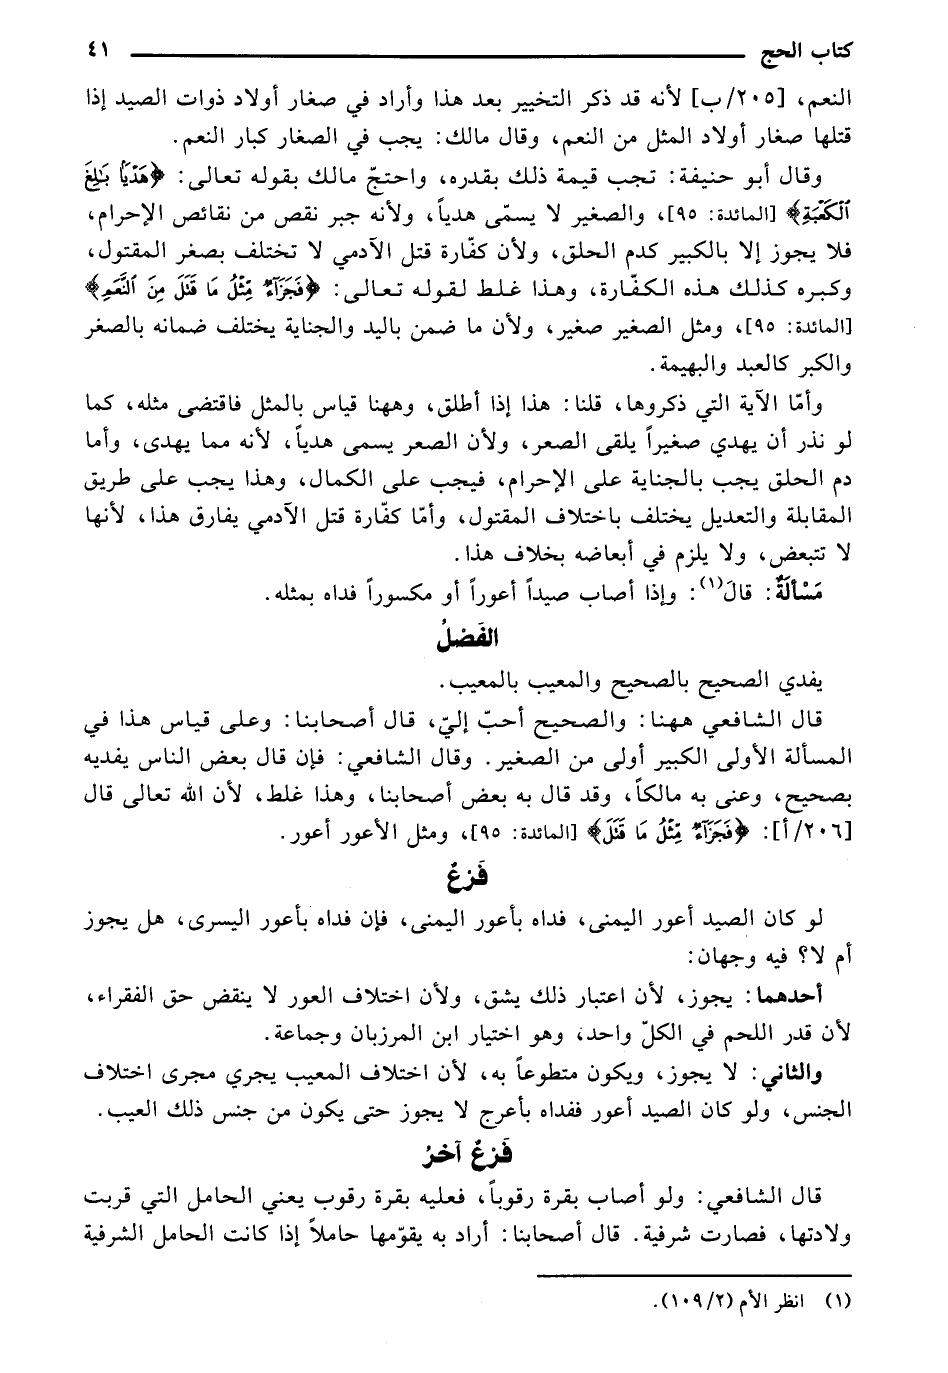 كتاب الحج ٤١
النعم، [٢٠٥/ب] لأنه قد ذكر التخيير بعد هذا وأراد في صغار أولاد ذوات الصيد إذا
قتلها صغار أولاد المثل من النعم، وقال مالك: يجب في الصغار كبار النعم.
وقال أبو حنيفة: تجب قيمة ذلك بقدره، واحتجّ مالك بقوله تعالى: ﴿هَدْيًا بَٰلِغَ
ٱلْكَعْبَةِ﴾ [المائدة: ٩٥]، والصغير لا يسمّى هدياً، ولأنه جبر نقص من نقائص الإحرام،
فلا يجوز إلا بالكبير كدم الحلق، ولأن كفّارة قتل الآدمي لا تختلف بصغر المقتول،
وكبره كذلك هذه الكفّارة، وهذا غلط لقوله تعالى: ﴿فَجَزَآءٌ مِّثْلُ مَا قَتَلَ مِنَ ٱلنَّعَمِ﴾
[المائدة: ٩٥]، ومثل الصغير صغير، ولأن ما ضمن باليد والجناية يختلف ضمانه بالصغر
والكبر كالعبد والبهيمة.
وأمّا الآية التي ذكروها، قلنا: هذا إذا أطلق، وههنا قياس بالمثل فاقتضى مثله، كما
لو نذر أن يهدي صغيراً يلقى الصعر، ولأن الصعر يسمى هدياً، لأنه مما يهدى، وأما
دم الحلق يجب بالجناية على الإحرام، فيجب على الكمال، وهذا يجب على طريق
المقابلة والتعديل يختلف باختلاف المقتول، وأمّا كفّارة قتل الآدمي يفارق هذا، لأنها
لا تتبعض، ولا يلزم في أبعاضه بخلاف هذا.
مَسْألَةٌ: قالَ(١): وإذا أصاب صيداً أعوراً أو مكسوراً فداه بمثله.
الفَصْلُ
يفدي الصحيح بالصحيح والمعيب بالمعيب.
قال الشافعي ههنا: والصحيح أحبّ إليّ، قال أصحابنا: وعلى قياس هذا في
المسألة الأولى الكبير أولى من الصغير. وقال الشافعي: فإن قال بعض الناس يفديه
بصحيح، وعنى به مالكاً، وقد قال به بعض أصحابنا، وهذا غلط، لأن الله تعالى قال
[٢٠٦/أ]: ﴿فَجَزَآءٌ مِّثْلُ مَا قَتَلَ﴾ [المائدة: ٩٥]، ومثل الأعور أعور.
فَرْعٌ
لو كان الصيد أعور اليمنى، فداه بأعور اليمنى، فإن فداه بأعور اليسرى، هل يجوز
أم لا؟ فيه وجهان:
أحدهما: يجوز، لأن اعتبار ذلك يشق، ولأن اختلاف العور لا ينقض حق الفقراء،
لأن قدر اللحم في الكلّ واحد، وهو اختيار ابن المرزبان وجماعة.
والثاني: لا يجوز، ويكون متطوعاً به، لأن اختلاف المعيب يجري مجرى اختلاف
الجنس، ولو كان الصيد أعور ففداه بأعرج لا يجوز حتى يكون من جنس ذلك العيب.
فَرْعٌ آخرُ
قال الشافعي: ولو أصاب بقرة رقوباً، فعليه بقرة رقوب يعني الحامل التي قربت
ولادتها، فصارت شرفية. قال أصحابنا: أراد به يقوّمها حاملاً إذا كانت الحامل الشرفية
(١) انظر الأم (١٠٩/٢).